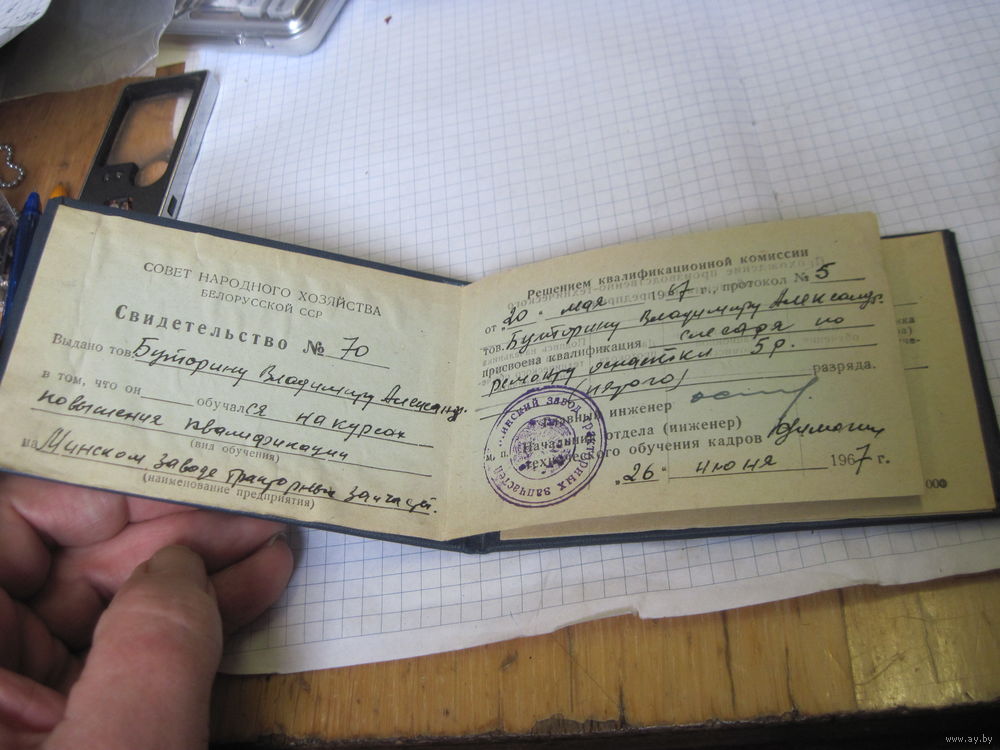 СОВЕТ НАРОДНОГО ХОЗЯЙСТВА
БЕЛОРУССКОЙ ССР
Свидетельство № 70
Выдано тов. Буторину Владимиру Александр.
в том, что он обучался на курсах
повышения квалификации
(вид обучения)
на Минском заводе тракторных запчастей.
(наименование предприятия)
Решением квалификационной комиссии
от „20" мая 1967 г., протокол № 5
тов. Буторину Владимиру Александр.
присвоена квалификация слесаря по
ремонту оснастки 5 р.
(пятого) разряда.
Главный инженер
м. п. Начальник отдела (инженер)
технического обучения кадров
„26" июня 1967 г.
Минский завод тракторных запчастей
000
www.ay.by